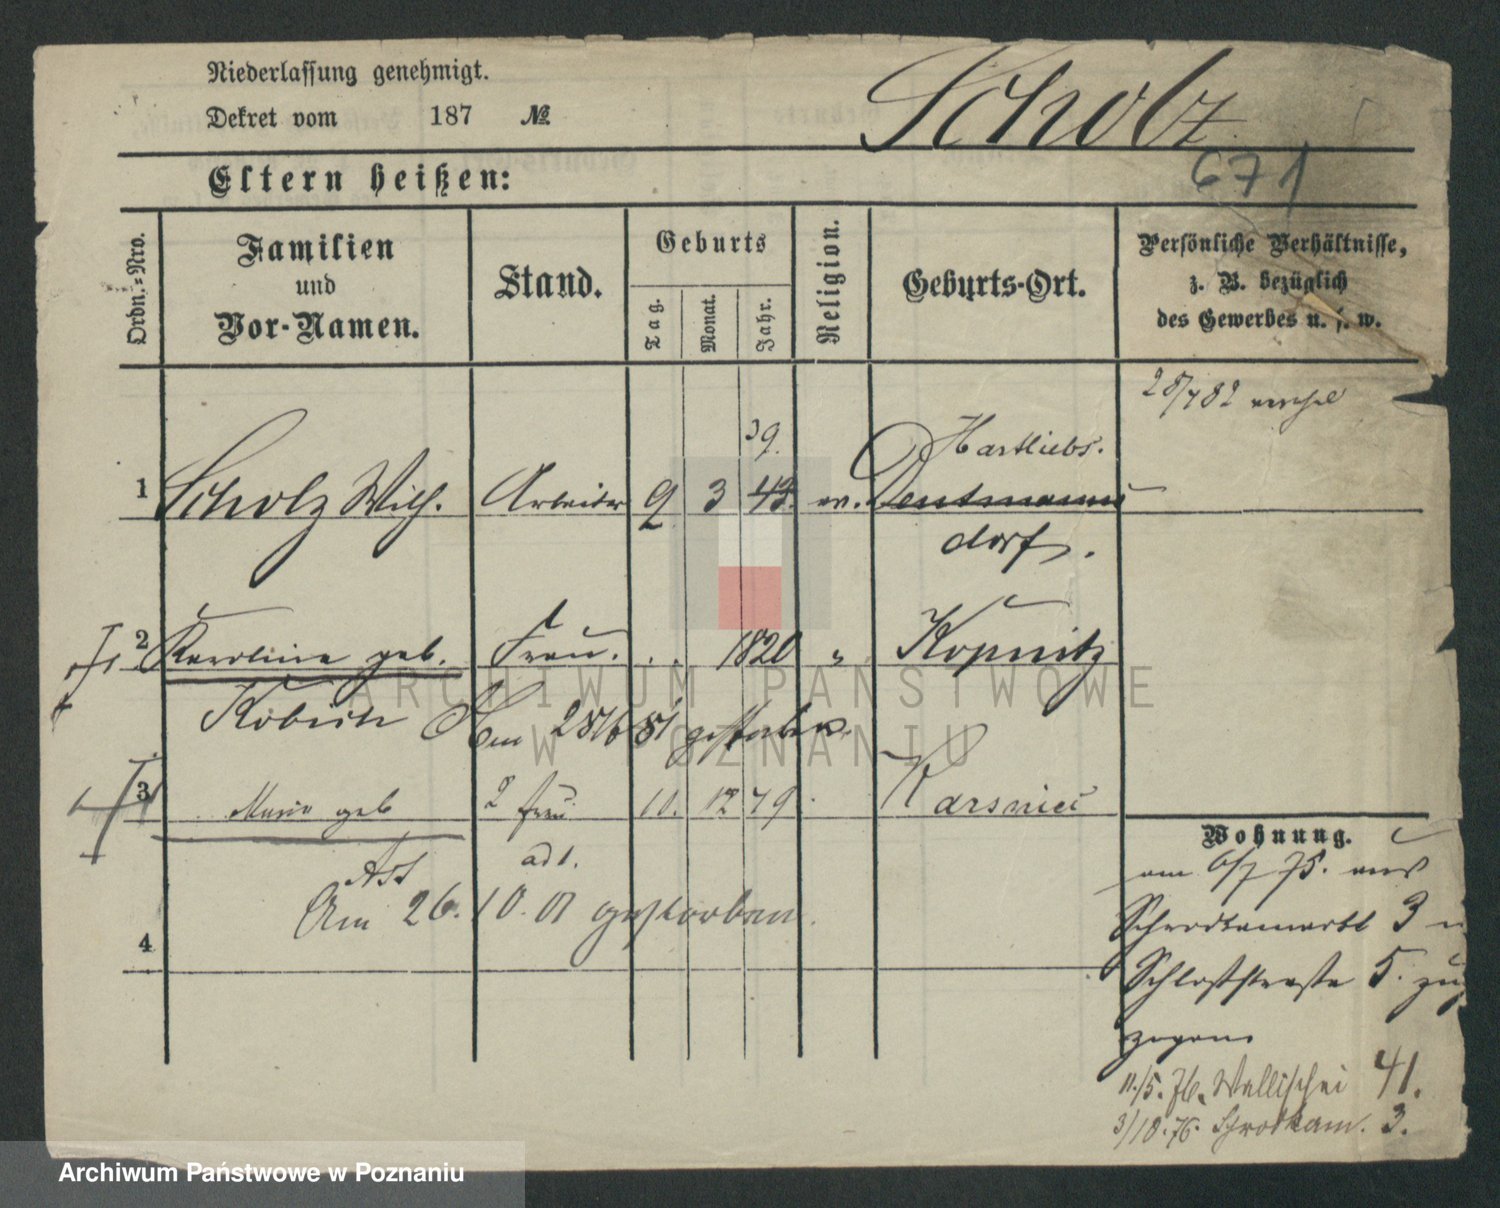 Niederlassung genehmigt.
Dekret vom 187 №
Scholz
671
Eltern heißen:
Ordn.-Nro.
Familien
und
Vor-Namen.
Stand.
Geburts
Tag.
Monat.
Jahr.
Religion.
Geburts-Ort.
Persönliche Verhältnisse,
z. B. bezüglich
des Gewerbes u. s. w.
39.
Hartliebs.
1 Scholz Wilh. Arbeiter 2 3 43. ev. Dentmanns
dorf.
2 Karoline geb. Frau. 1820 " Kopnitz
Am 28/6 81 gestorben.
3 Marie geb 2 Frau 10. 12 49
ad 1.
Am 26. 10. 01 gestorben.
4
Wohnung.
am 6/7 75. aus
Schrodkamarkt 3 n
Schloßstraße 5. zug
zogen
11./5. 76. Wallischei 41.
3/10. 76. Schrodkam. 3.
ARCHIWUM PAŃSTWOWE
W POZNANIU
Archiwum Państwowe w Poznaniu